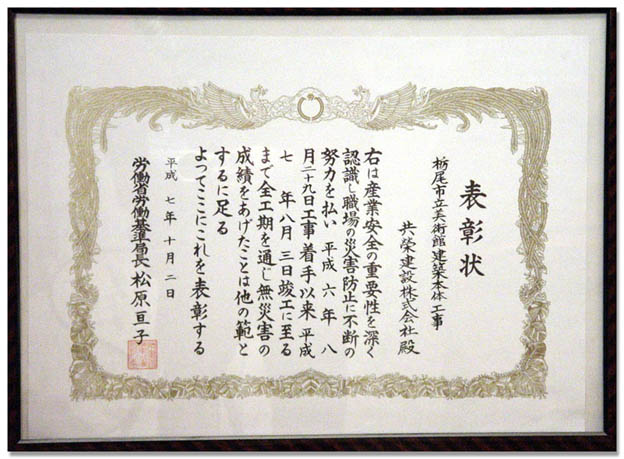 表彰状
栃尾市立美術館建築本体工事
共栄建設株式会社殿
右は産業安全の重要性を深く
認識し職場の災害防止に不断の
努力を払い平成六年八
月二十九日工事着手以来平成
七年八月三日竣工に至る
まで全工期を通し無災害の
成績をあげたことは他の範と
するに足る
よってここにこれを表彰する
平成七年十月二日
労働省労働基準局長松原亘子